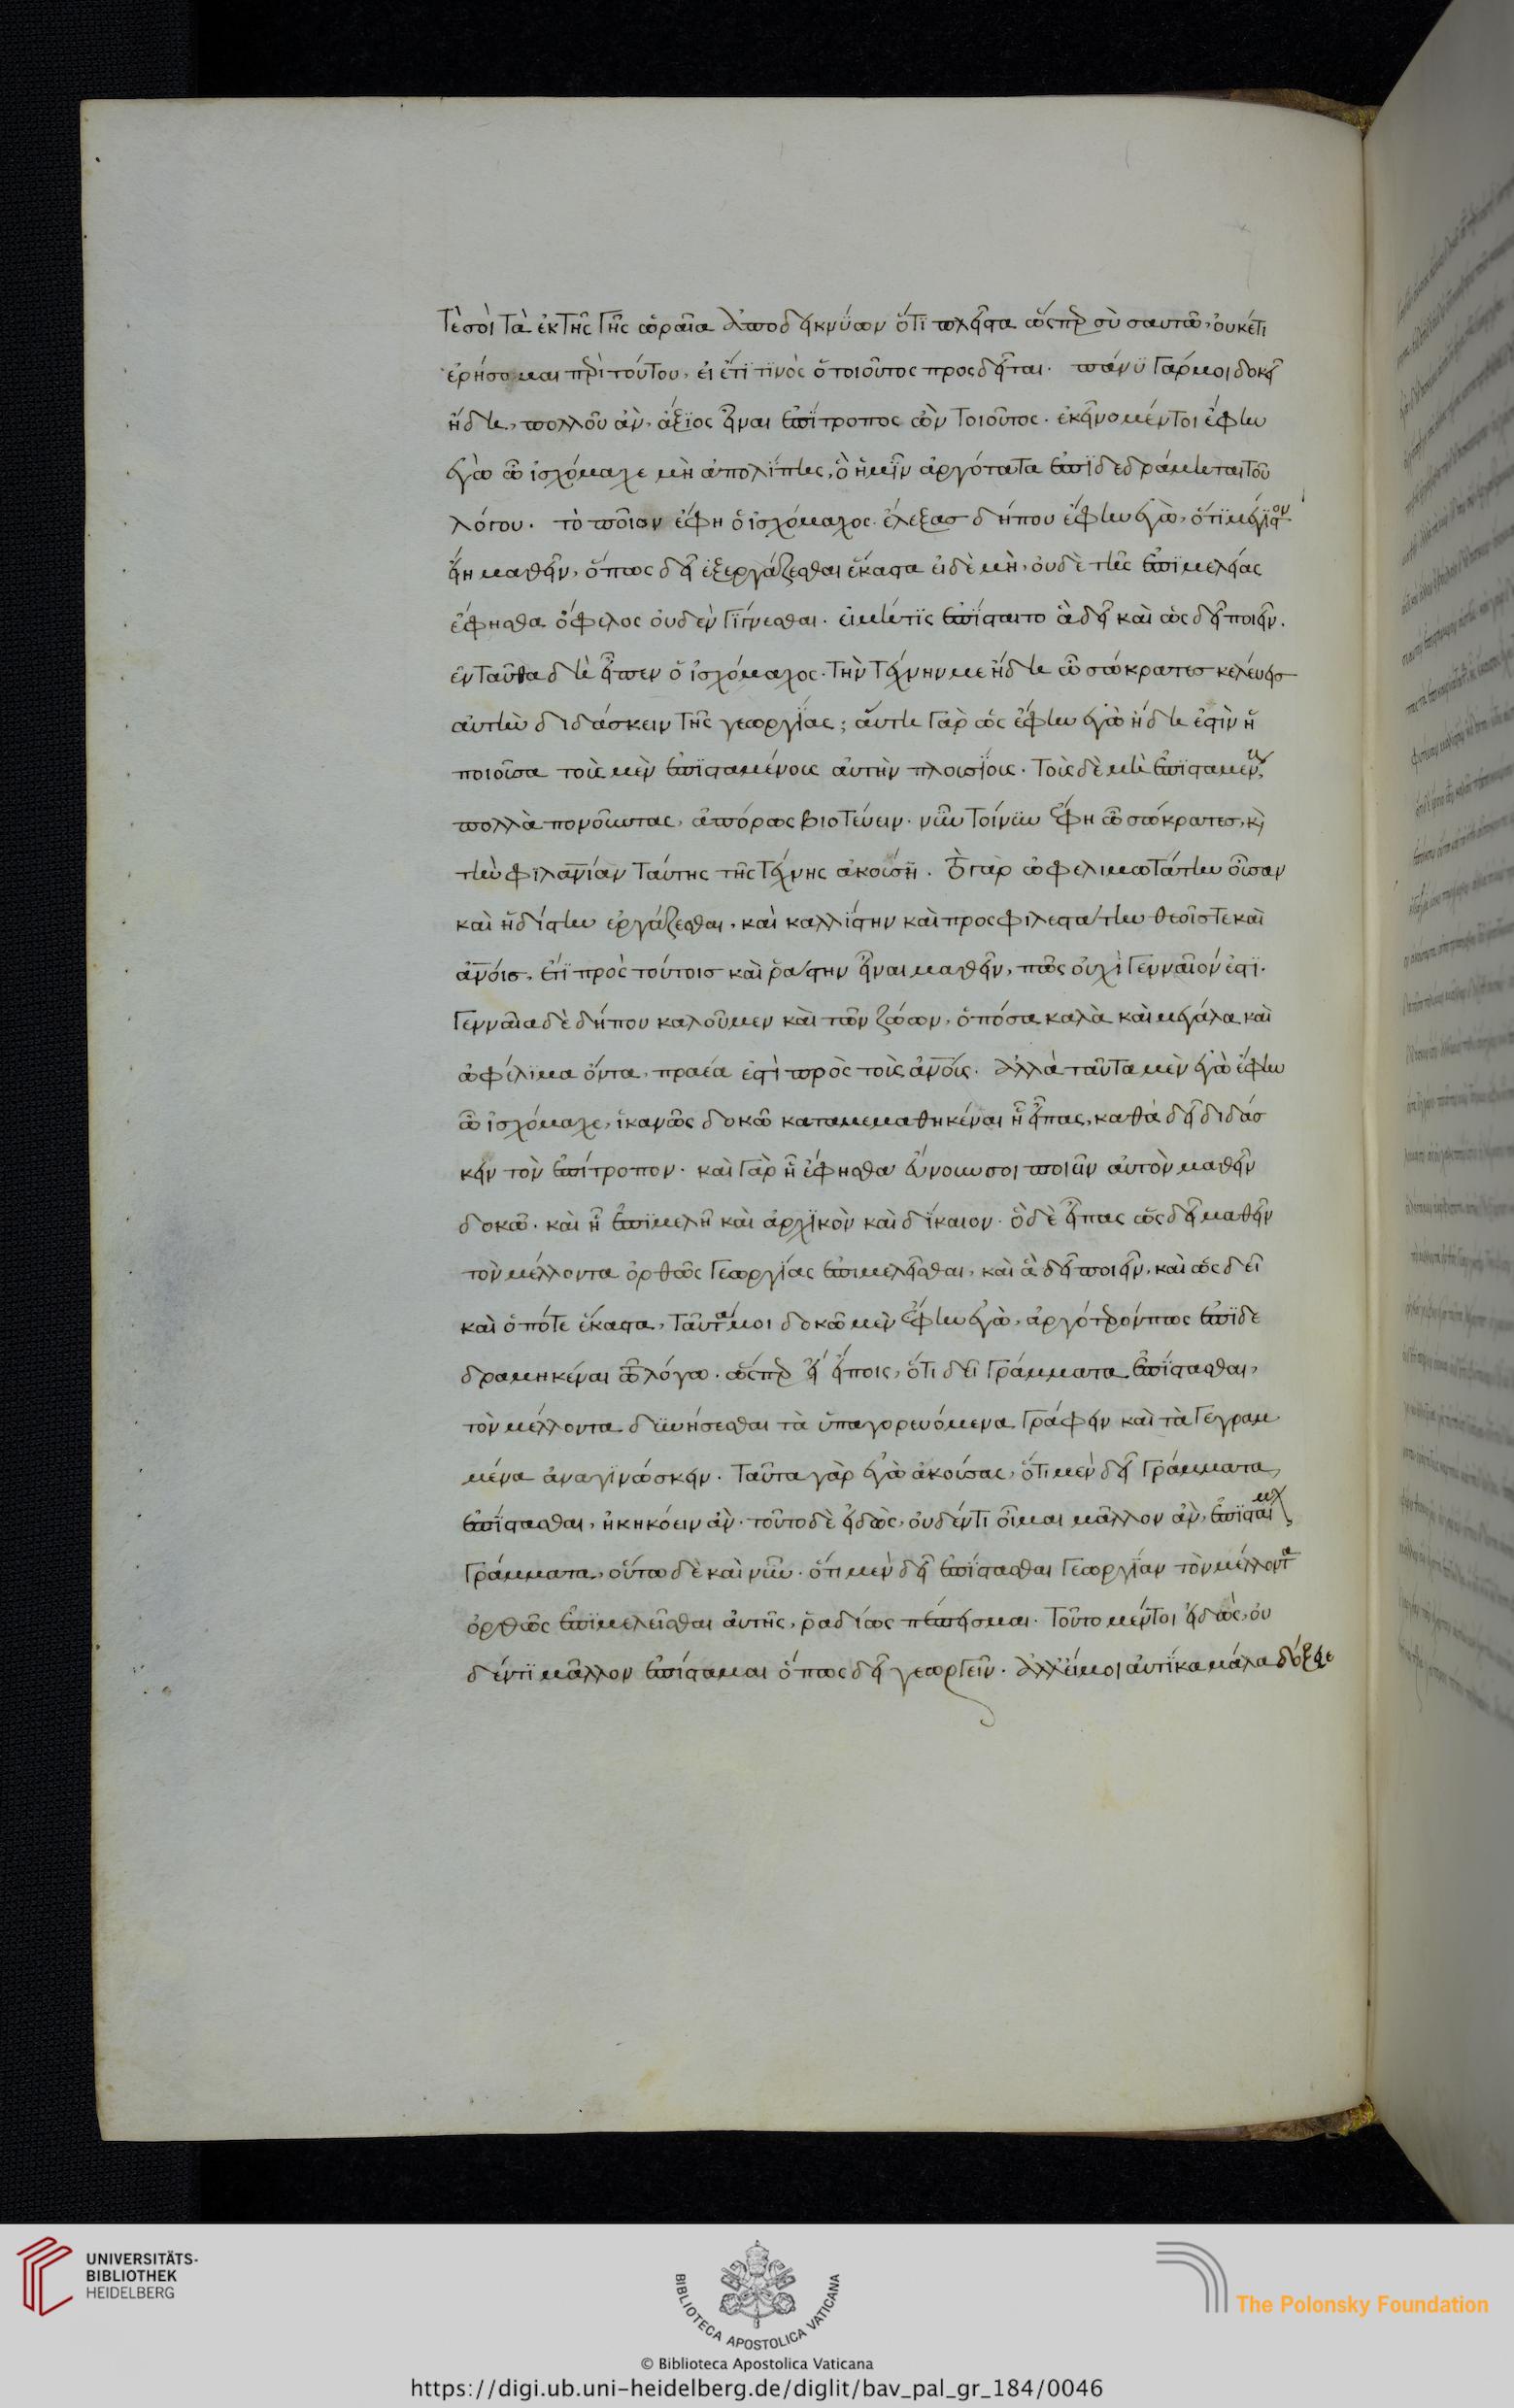 τέ σοι τὰ ἐκ τῆς γῆς ὡραῖα ἀποδεικνύων ὅτι πλεῖστα ὥσπερ σὺ σαυτῶ, οὐκέτι
ἐρήσομαι περὶ τούτου, εἰ ἔτι τινὸς ὁ τοιοῦτος προσδεῖται. πάνυ γάρ μοι δοκεῖ
ἤδη, πολλοῦ ἂν, ἄξιος εἶναι ἐπίτροπος ὢν τοιοῦτος. ἐκεῖνο μέντοι ἔφην
ἐγὼ ὦ ἰσχόμαχε μὴ ἀπολίπης, ὃ ἡμῖν ἀργότατα ἐπιδεδράμηται τοῦ
λόγου. τὸ ποῖον ἔφη ὁ ἰσχόμαχος. ἔλεξας δήπου ἔφην ἐγὼ, ὅτι μέγιστον
εἴη μαθεῖν, ὅπως δεῖ ἐξεργάζεσθαι ἕκαστα εἰ δὲ μὴ, οὐδὲ τῆς ἐπιμελείας
ἔφησθα ὄφελος οὐδὲν γίγνεσθαι. εἰ μή τις ἐπίσταιτο ἃ δεῖ καὶ ὡς δεῖ ποιεῖν.
ἐνταῦθα δὴ εἶπεν ὁ ἰσχόμαχος. τὴν τέχνην με ἤδη ὦ σώκρατες κελεύεις
αὐτὴν διδάσκειν τῆς γεωργίας; αὕτη γὰρ ὡς ἔφην ἐγὼ ἤδη ἐστὶν ἡ
ποιοῦσα τοὺς μὲν ἐπισταμένους αὐτὴν πλουσίους. τοὺς δὲ μὴ ἐπισταμένους
πολλὰ πονοῦντας, ἀπόρως βιοτεύειν. νῦν τοίνυν ἔφη ὦ σώκρατες, καὶ
τὴν φιλανίαν ταύτης τῆς τέχνης ἀκούση. τὸ γὰρ ὠφελιμωτάτην οὖσαν
καὶ ἡδίστην ἐργάζεσθαι, καὶ καλλίστην καὶ προσφιλεστάτην θεοῖς τε καὶ
ἀνοις, ἔτι πρὸς τούτοις καὶ ῥάστην εἶναι μαθεῖν, πῶς οὐχὶ γενναῖόν ἐστι.
γενναῖα δὲ δήπου καλοῦμεν καὶ τῶν ζώων, ὁπόσα καλὰ καὶ μεγάλα καὶ
ὠφέλιμα ὄντα, πραέα ἐστὶ πρὸς τοὺς ἀνους. ἀλλὰ ταῦτα μὲν ἐγὼ ἔφην
ὦ ἰσχόμαχε, ἱκανῶς δοκῶ καταμεμαθηκέναι ἧ εἶπας, καθὰ δεῖ διδάσ
κειν τὸν ἐπίτροπον. καὶ γὰρ ἧ ἔφησθα εὔνουν σοι ποιεῖν αὐτὸν μαθεῖν
δοκῶ. καὶ ἧ ἐπιμελῆ καὶ ἀρχικὸν καὶ δίκαιον. ὃ δὲ εἶπας ὡς δεῖ μαθεῖν
τὸν μέλλοντα ὀρθῶς γεωργίας ἐπιμελεῖσθαι, καὶ ἃ δεῖ ποιεῖν, καὶ ὡς δεῖ
καὶ ὁπότε ἕκαστα, ταῦτά μοι δοκοῦμεν ἔφην ἐγὼ, ἀργότερόν πως ἐπιδε
δραμηκέναι τῶ λόγω. ὥσπερ εἰ εἴποις, ὅτι δεῖ γράμματα ἐπίστασθαι,
τὸν μέλλοντα δυνήσεσθαι τὰ ὑπαγορευόμενα γράφειν καὶ τὰ γεγραμ
μένα ἀναγινώσκειν. ταῦτα γὰρ ἐγὼ ἀκούσας, ὅτι μὲν δεῖ γράμματα
ἐπίστασθαι, ἠκηκόειν ἂν. τοῦτο δὲ εἰδὼς, οὐδέν τι οἶμαι μᾶλλον ἂν, ἐπισταίμην
γράμματα, οὕτω δὲ καὶ νῦν. ὅτι μὲν δεῖ ἐπίστασθαι γεωργίαν τὸν μέλλοντα
ὀρθῶς ἐπιμελεῖσθαι αὐτῆς, ῥαδίως πέπεισμαι. τοῦτο μέντοι εἰδὼς, οὐ
δέν τι μᾶλλον ἐπίσταμαι ὅπως δεῖ γεωργεῖν. ἀλλ' εἴ μοι αὐτίκα μάλα δόξειε
UNIVERSITÄTS-
BIBLIOTHEK
HEIDELBERG
BIBLIOTECA APOSTOLICA VATICANA
The Polonsky Foundation
© Biblioteca Apostolica Vaticana
https://digi.ub.uni-heidelberg.de/diglit/bav_pal_gr_184/0046